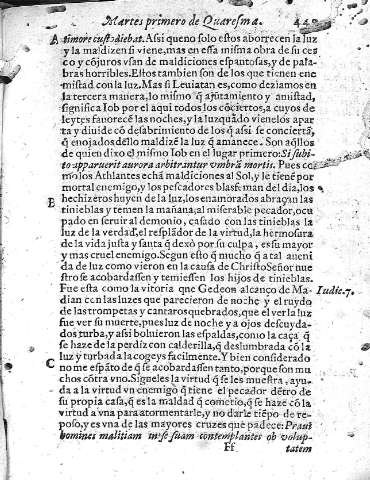 Martes primero de Quaresma.
A timore custodiebat. Assi que no solo estos aborrecen la luz
y la maldizen si viene, mas en essa misma obra de su cer
co y cõjuros vsan de maldiciones espantosas, y de pala
bras horribles. Estos tambien son de los que tienen ene
mistad con la luz. Mas si Leuiatan es, como deziamos en
la tercera manera, lo mismo q̃ ajutamiento y amistad,
significa Iob por el aqui todos los cõciertos, a cuyos de
leytes fauorecẽ las noches, y la luz quãdo viene los apar
ta y diuide cõ desabrimiento de los q̃ assi se conciertã,
q̃ enojados dello maldizẽ la luz q̃ amanece. Son aq̃llos
de quien dixo el mismo Iob en el lugar primero: Si subi-
to apparuerit aurora arbitrantur vmbrã mortis. Pues co
mo los Athlantes echã maldiciones al Sol, y le tienẽ por
mortal enemigo, y los pescadores blasfeman del dia, los
hechizeros huyen de la luz, los enamorados abraçan las
B tinieblas y temen la mañana, al miserable pecador, ocu
pado en seruir al demonio, casado con las tinieblas la
luz de la verdad, el resplãdor de la virtud, la hermosura
de la vida justa y santa q̃ dexò por su culpa, es su mayor
y mas cruel enemigo. Segun esto q̃ mucho q̃ a tal aueni
da de luz como vieron en la causa de Christo Señor nue
stro se acobardassen y temiessen los hijos de tinieblas.
Fue esta como la vitoria que Gedeon alcanço de Ma-
dian con las luzes que parecieron de noche y el ruydo
de las trompetas y cantaros quebrados, que el ver la luz
fue ver su muerte, pues luz de noche y a ojos descuyda-
dos turba, y assi boluieron las espaldas, como la caça q̃
se haze de la perdiz con calderilla, q̃ deslumbrada cõ la
luz y turbada la cogeys facilmente. Y bien considerado
C no me espãto de q̃ se acobardassen tanto, porque son mu
chos cõtra vno. Si gneles la virtud q̃ se les muestra, ayu-
da a la virtud vn enemigo q̃ tiene el pecador dẽtro de
su propia casa, q̃ es la maldad q̃ cometio, q̃ se haze cõ la
virtud a vna para atormentarle, y no darle tiẽpo de re-
poso, y es vna de las mayores cruzes que padece: Praui
homines malitiam in se suam contemplantes ob volup-
Ff tatem
Iudic.7.